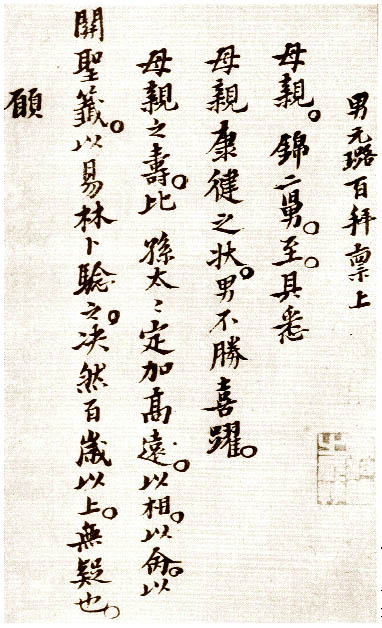 男元璐百拜禀上
母親。錦二舅。至。具悉
母親康健之狀。男不勝喜躍。
母親之壽。比孫太〻定加高遠。以相。以命。以
關聖籤。以易林卜驗之。決然百歲以上。無疑也。
願